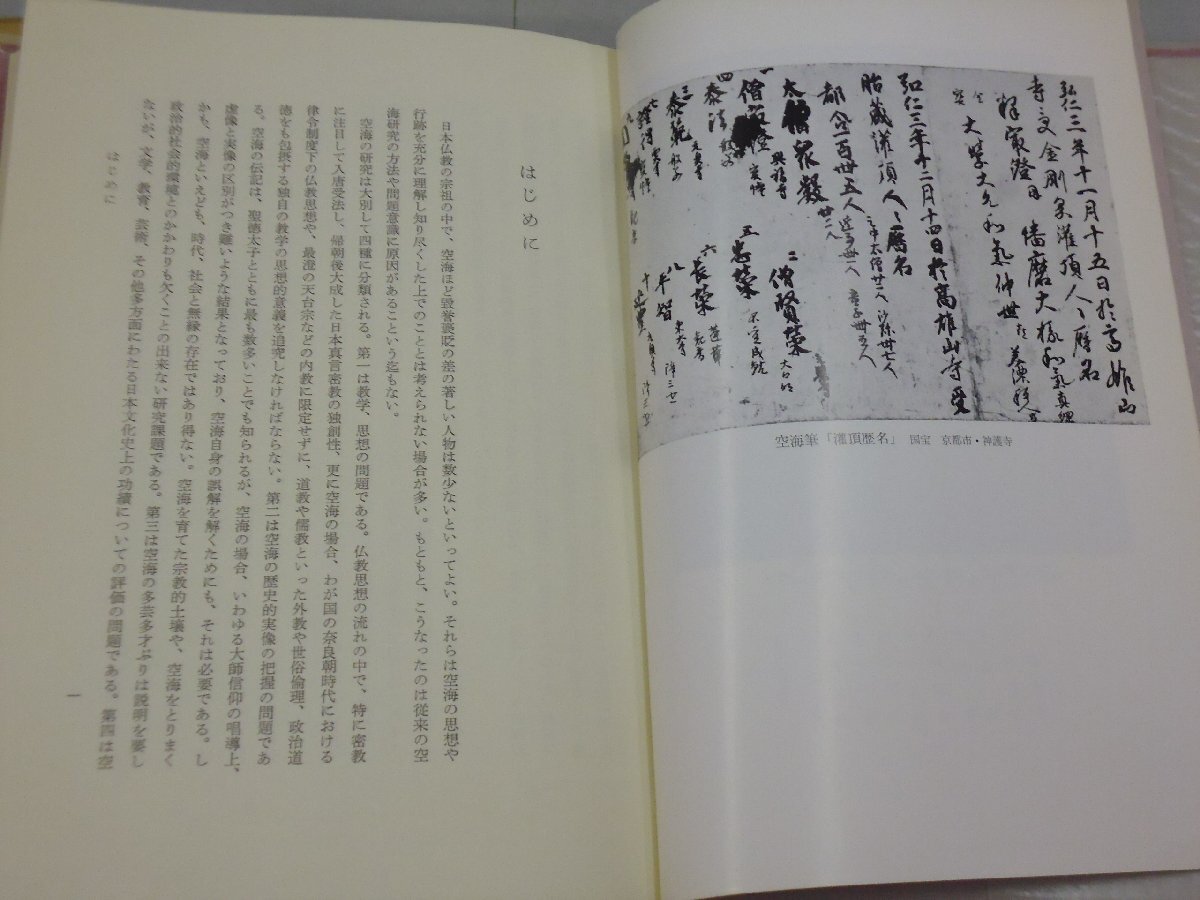 弘仁三年十一月十五日於高雄山
寺受金剛界灌頂人々暦名
釋最澄 播磨大掾和氣真綱
大學大允和氣仲世
弘仁三年十二月十四日於高雄山寺受
胎蔵灌頂人々暦名
都合一百卌五人
太僧衆數
二 僧賢榮
泰法
五 忠榮
三 泰範
六 長榮
空海筆「灌頂歴名」 国宝 京都市・神護寺
はじめに
日本仏教の宗祖の中で、空海ほど毀誉褒貶の差の著しい人物は数少ないといってよい。それらは空海の思想や
行跡を充分に理解し知り尽くした上でのこととは考えられない場合が多い。もともと、こうなったのは従来の空
海研究の方法や問題意識に原因があること言う迄もない。
空海の研究は大別して四種に分類される。第一は教学、思想の問題である。仏教思想の流れの中で、特に密教
に注目して入唐受法し、帰朝後大成した日本真言密教の独創性、更に空海の場合、わが国の奈良朝時代における
律令制度下の仏教思想や、最澄の天台宗などの内教に限定せずに、道教や儒教といった外教や世俗倫理、政治道
徳をも包摂する独自の教学の思想的意義を追究しなければならない。第二は空海の歴史的実像の把握の問題であ
る。空海の伝記は、聖徳太子とともに最も数多いことでも知られるが、空海の場合、いわゆる大師信仰の唱導上、
虚像と実像の区別がつき難いような結果となっており、空海自身の誤解を解くためにも、それは必要である。し
かも、空海といえども、時代、社会と無縁の存在ではあり得ない。空海を育てた宗教的土壌や、空海をとりまく
政治的社会的環境とのかかわりも欠くことの出来ない研究課題である。第三は空海の多芸多才ぶりは説明を要し
ないが、文学、教育、芸術、その他多方面にわたる日本文化史上の功績についての評価の問題である。第四は空
はじめに
一